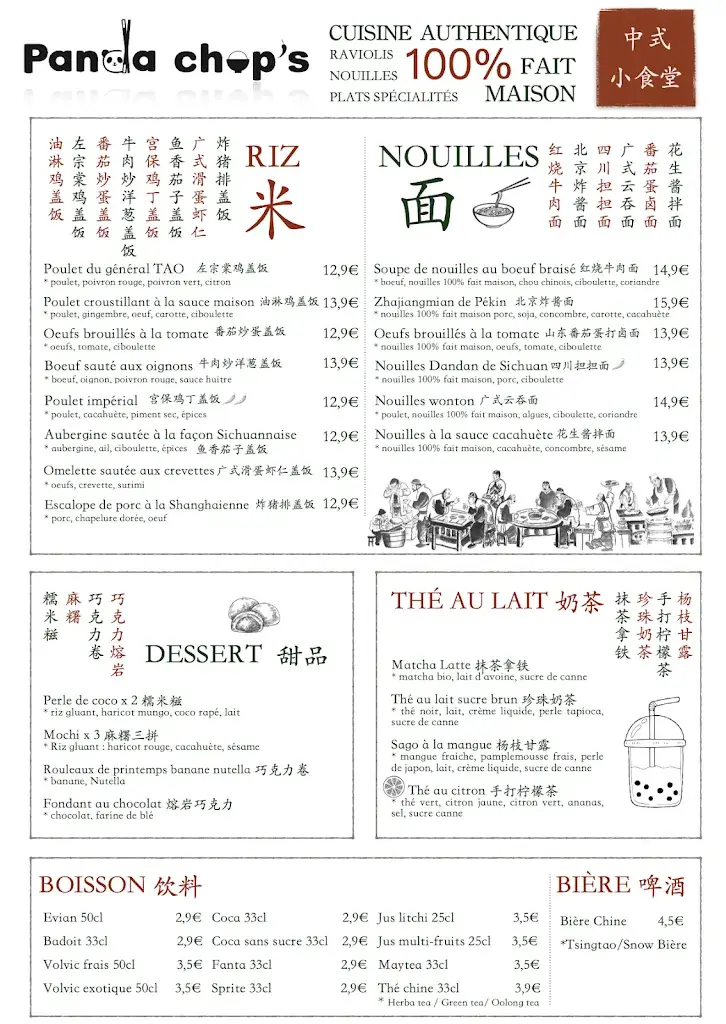 Panda chop's
CUISINE AUTHENTIQUE
RAVIOLIS
NOUILLES
100% FAIT
PLATS SPÉCIALITÉS
MAISON
中式
小食堂
油淋鸡盖饭
左宗棠鸡盖饭
番茄炒蛋盖饭
牛肉炒洋葱盖饭
宫保鸡丁盖饭
鱼香茄子盖饭
广式滑蛋虾仁
炸猪排盖饭
RIZ
米
Poulet du général TAO 左宗棠鸡盖饭 12,9€
* poulet, poivron rouge, poivron vert, citron
Poulet croustillant à la sauce maison 油淋鸡盖饭 13,9€
* poulet, gingembre, oeuf, carotte, ciboulette
Oeufs brouillés à la tomate 番茄炒蛋盖饭 12,9€
* oeufs, tomate, ciboulette
Boeuf sauté aux oignons 牛肉炒洋葱盖饭 13,9€
* boeuf, oignon, poivron rouge, sauce huitre
Poulet impérial 宫保鸡丁盖饭 12,9€
* poulet, cacahuète, piment sec, épices
Aubergine sautée à la façon Sichuannaise 12,9€
* aubergine, ail, ciboulette, épices 鱼香茄子盖饭
Omelette sautée aux crevettes 广式滑蛋虾仁盖饭 13,9€
* oeufs, crevette, surimi
Escalope de porc à la Shanghaienne 炸猪排盖饭 12,9€
* porc, chapelure dorée, oeuf
NOUILLES
面
红烧牛肉面
北京炸酱面
四川担担面
广式云吞面
番茄蛋卤面
花生酱拌面
Soupe de nouilles au boeuf braisé 红烧牛肉面 14,9€
* boeuf, nouilles 100% fait maison, chou chinois, ciboulette, coriandre
Zhajiangmian de Pékin 北京炸酱面 15,9€
* nouilles 100% fait maison porc, soja, concombre, carotte, cacahuète
Oeufs brouillés à la tomate 山东番茄蛋打卤面 13,9€
* nouilles 100% fait maison, oeufs, tomate, ciboulette
Nouilles Dandan de Sichuan 四川担担面 13,9€
* nouilles 100% fait maison, porc, ciboulette
Nouilles wonton 广式云吞面 14,9€
* poulet, nouilles 100% fait maison, algues, ciboulette, coriandre
Nouilles à la sauce cacahuète 花生酱拌面 13,9€
* nouilles 100% fait maison, cacahuète, concombre, sésame
糯米糍
麻糬
巧克力卷
巧克力熔岩
DESSERT 甜品
Perle de coco x 2 糯米糍
* riz gluant, haricot mungo, coco rapé, lait
Mochi x 3 麻糬三拼
* Riz gluant : haricot rouge, cacahuète, sésame
Rouleaux de printemps banane nutella 巧克力卷
* banane, Nutella
Fondant au chocolat 熔岩巧克力
* chocolat, farine de blé
THÉ AU LAIT 奶茶
抹茶拿铁
珍珠奶茶
手打柠檬茶
杨枝甘露
Matcha Latte 抹茶拿铁
* matcha bio, lait d'avoine, sucre de canne
Thé au lait sucre brun 珍珠奶茶
* thé noir, lait, crème liquide, perle tapioca,
sucre de canne
Sago à la mangue 杨枝甘露
* mangue fraiche, pamplemousse frais, perle
de japon, lait, crème liquide, sucre de canne
Thé au citron 手打柠檬茶
* thé vert, citron jaune, citron vert, ananas,
sel, sucre canne
BOISSON 饮料
Evian 50cl 2,9€
Badoit 33cl 2,9€
Volvic frais 50cl 3,5€
Volvic exotique 50cl 3,5€
Coca 33cl 2,9€
Coca sans sucre 33cl 2,9€
Fanta 33cl 2,9€
Sprite 33cl 2,9€
Jus litchi 25cl 3,5€
Jus multi-fruits 25cl 3,5€
Maytea 33cl 3,5€
Thé chine 33cl 3,9€
* Herba tea / Green tea/ Oolong tea
BIÈRE 啤酒
Bière Chine 4,5€
*Tsingtao/Snow Bière